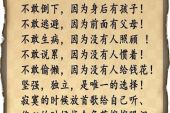 不敢倒下，因为身后有孩子！
不敢逃避，因为前面有父母！
不敢生病，因为没有人照顾！
不敢说累，因为没有人惯着！
不敢偷懒，因为没有人给钱花！
坚强，独立，是唯一的选择！
寂寞的时候放首歌给自己听、